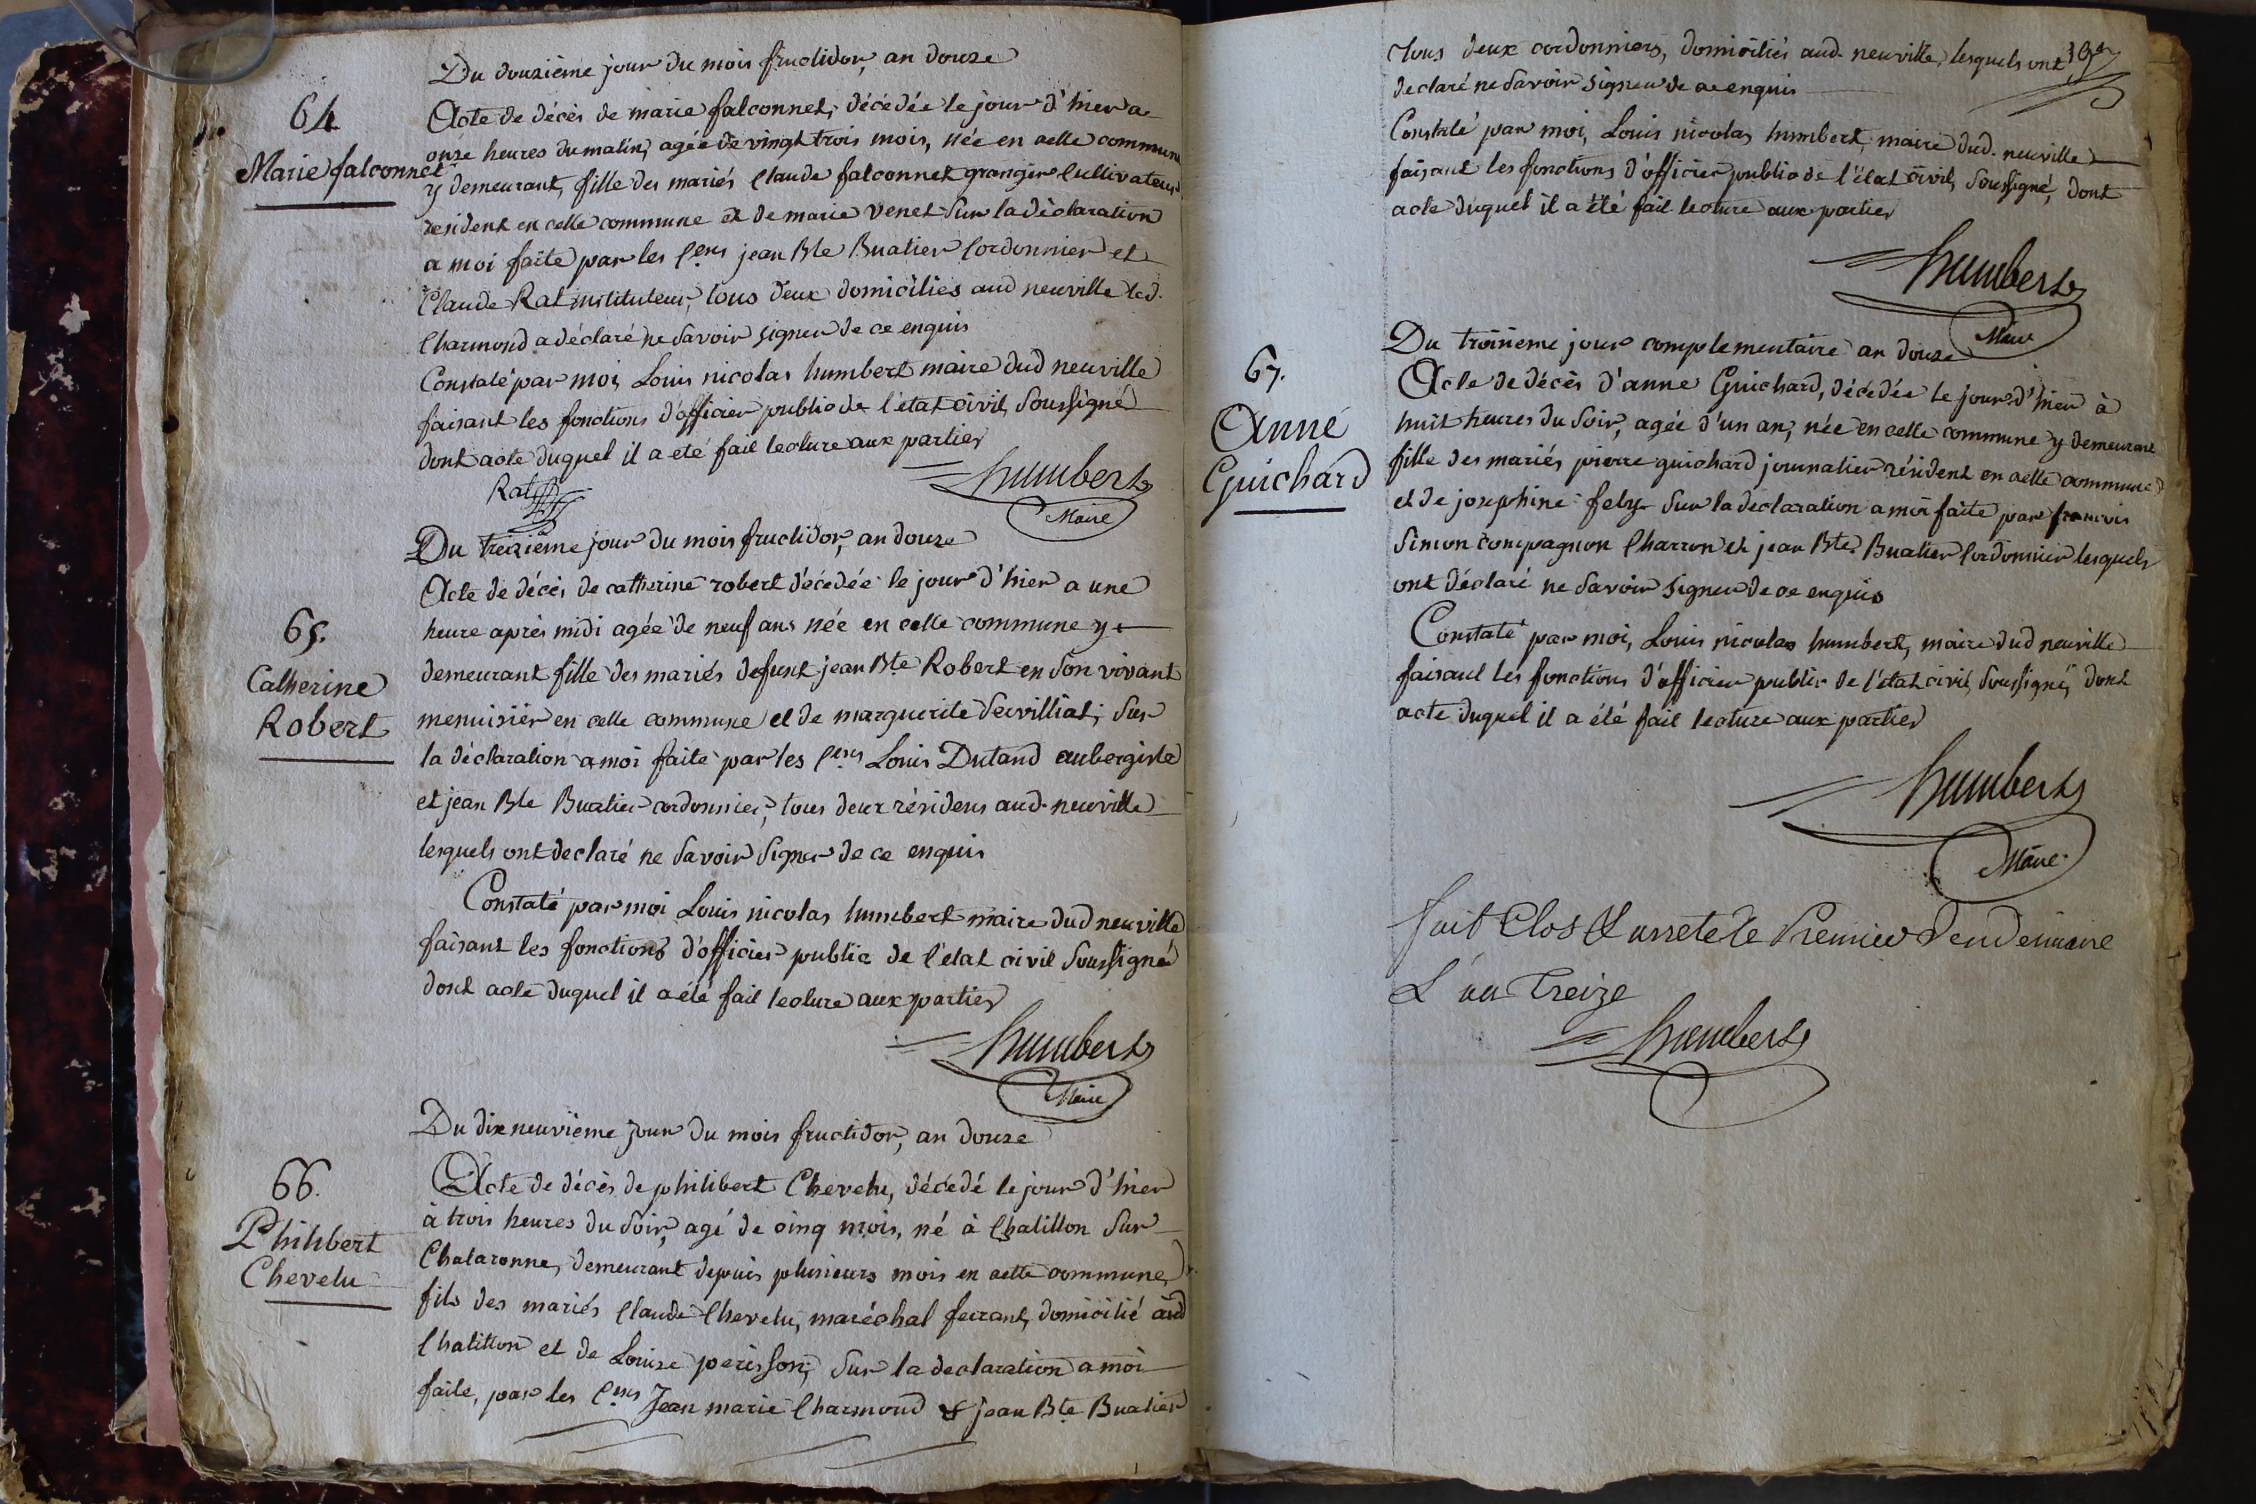 Du douzième jour du mois fructidor, an douze
64
Marie falconnet
Acte de décès de marie falconnet, décédée le jour d'hier a
onze heures du matin, agée de vingt trois mois, née en cette commune
y demeurant, fille des mariés Claude falconnet granger Cultivateur
resident en cette commune et de marie Venet Sur la déclaration
a moi faite par les Cens jean Bte Buatier Cordonnier et
Claude Rat instituteur, tous deux domiciliés aud neuville led.
Charmond a déclaré ne Savoir signer de ce enquis
Constaté par moi, Louis nicolas humbert maire dud neuville
faisant les fonctions d'officier public de l'état civil, Soussigné
dont acte duquel il a eté fait lecture aux parties
Rat
humbert
Maire
Du treizième jour du mois fructidor, an douze
65.
Catherine
Robert
Acte de décès de catherine robert décédée le jour d'hier a une
heure après midi agée de neuf ans née en cette commune y
demeurant fille des mariés defunt jean Bte Robert en Son vivant
menuisier en cette commune et de marguerite Servilliat, Sur
la déclaration a moi faite par les Cens Louis Dutand aubergiste
et jean Bte Buatier cordonnier, tous deux résidens aud. neuville
lesquels ont declaré ne Savoir Signer de ce enquis
Constaté par moi Louis nicolas humbert maire dud neuville
faisant les fonctions d'officier public de l'état civil Soussigné
dont acte duquel il a été fait lecture aux parties
humbert
Maire
Du dix neuvième jour du mois fructidor, an douze
66.
Philibert
Chevelu
Acte de décès de philibert Chevelu, décedé le jour d'hier
à trois heures du Soir, agé de cinq mois, né à Chatillon Sur
Chalaronne, demeurant depuis plusieurs mois en cette commune,
fils des mariés Claude Chevelu, maréchal ferrant, domicilié aud
Chatillon et de Louise perisson, Sur la declaration a moi
faite, par les Cens Jean marie Charmond & jean Bte Buatier
tous deux cordonniers, domiciliés aud. neuville, lesquels ont
declaré ne Savoir signer de ce enquis
Constaté par moi, Louis nicolas humbert, maire dud. neuville
faisant les fonctions d'officier public de l'état civil, Soussigné, dont
acte duquel il a été fait lecture aux parties
humbert
Maire
Du troisieme jour complementaire an douze
67.
Anne
Guichard
Acte de décès d'anne Guichard, décédée le jour d'hier à
huit heures du Soir, agée d'un an, née en cette commune y demeurant
fille des mariés pierre guichard journalier résident en cette commune
et de josephine feby Sur la declaration a moi faite par francois
Simon compagnon Charron et jean Bte. Buatier Cordonnier lesquels
ont déclaré ne Savoir signer de ce enquis
Constaté par moi, Louis nicolas humbert, maire dud neuville
faisant les fonctions d'officier public de l'état civil, Soussigné, dont
acte duquel il a été fait lecture aux parties
humbert
Maire.
fait Clos & arreté le Premier Vendemiaire
L'an Treize
humbert